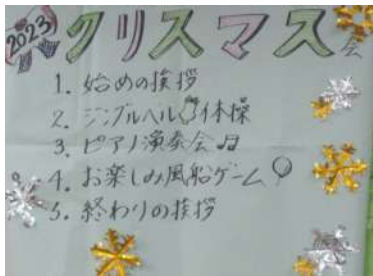 2023 クリスマス会
1. 始めの挨拶
2. ジングルベル体操
3. ピアノ演奏会
4. お楽しみ風船ゲーム
5. 終わりの挨拶